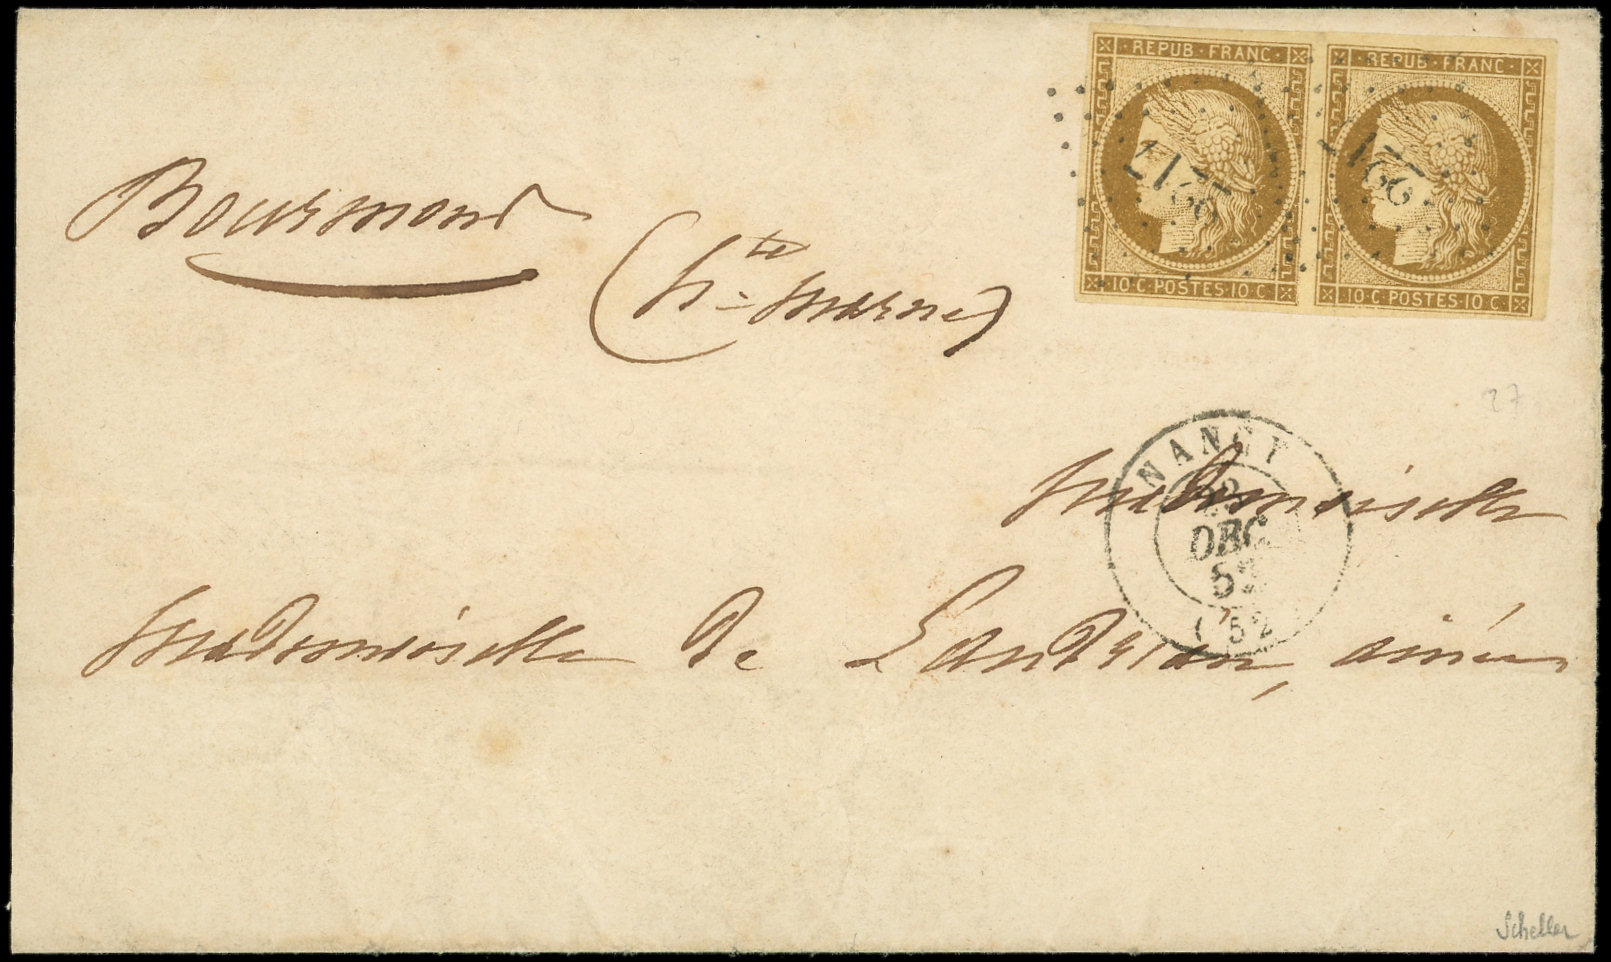 REPUB · FRANC · REPUB · FRANC ·
2217 2217
10 · C · POSTES · 10 · C 10 · C · POSTES · 10 · C
Bourmont
(hte marne)
27
NANCY
DEC
52
(52)
Mademoiselle
Mademoiselle de Landrian, ainée
Scheller